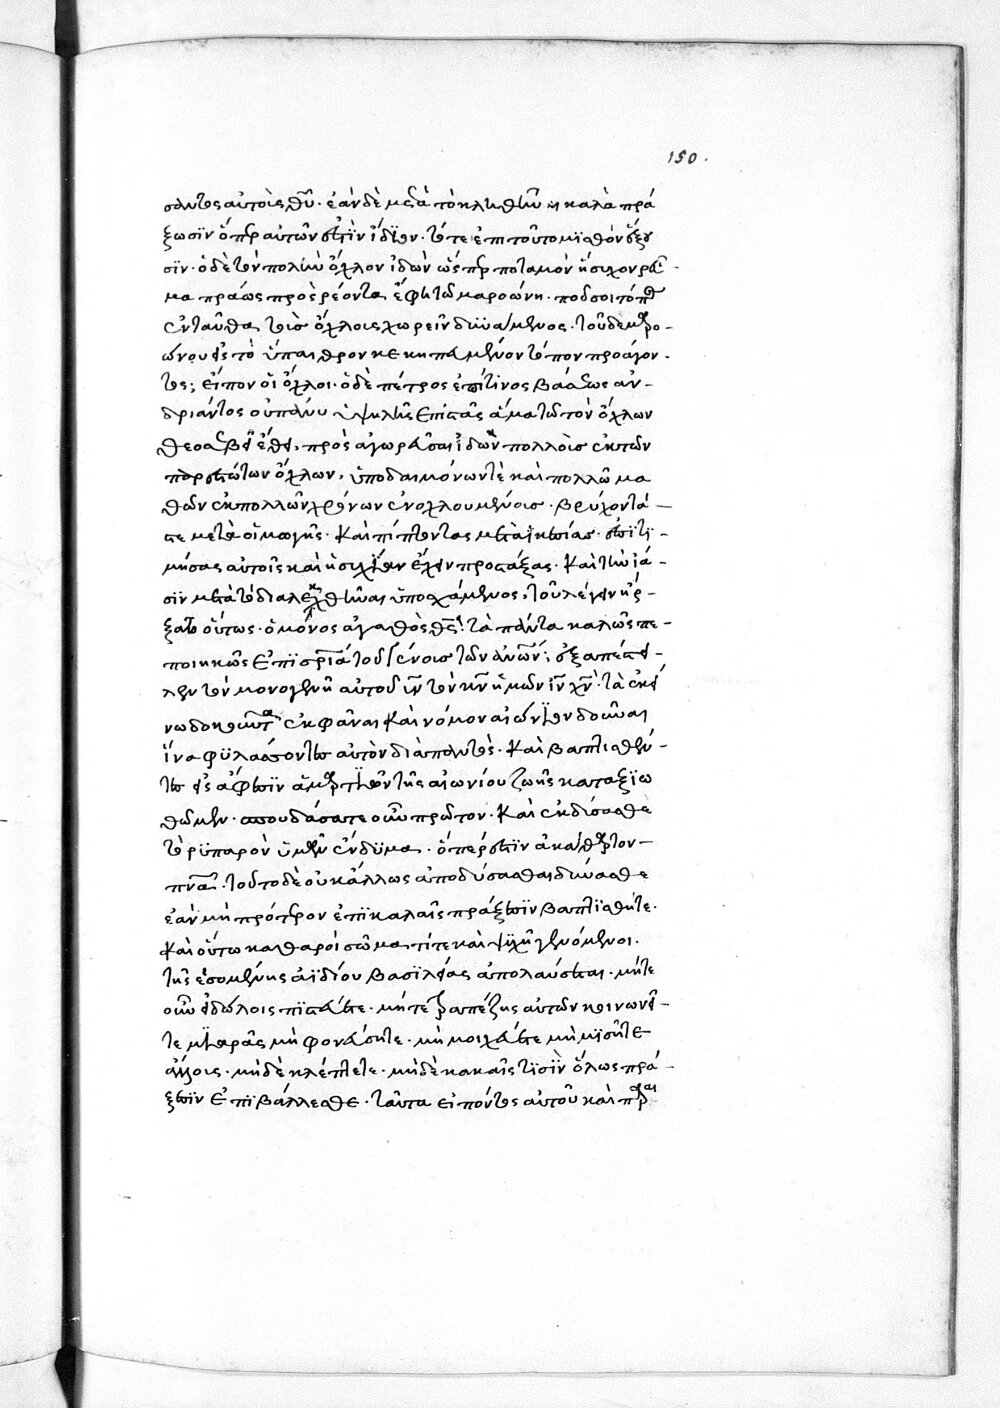 150.
σαντες αὐτοῖς θῦ· ἐὰν δὲ μετὰ τὸ κληθῆναι καλὰ πρά
ξωσϊν ὅπερ αὐτῶν ἐστὶν ἴδϊον· τότε ἐπὶ τούτο μϊσθὸν ἕξου
σϊν· ὁ δὲ τὸν πολὺν ὄχλον ἰδὼν ὥσπερ ποταμὸν ἥσυχον ρεῦ-
μα πράως προσρέοντα ἔφη τῷ μαροώνη· ποῦ σοι τόπος
ἐνταῦθα τοῖσ ὄχλοις χωρεῖν δυνάμενος· τοῦ δε μαρο-
ώνου εἰς τὸ ὕπαιθρον κεκηπευμένον τόπον προάγον-
τος; εἵποντο οἱ ὄχλοι· ὁ δὲ πέτρος ἐπί τινος βάσεως ἀν-
δριάντος οὐ πάνυ ὑψηλῆς ἐπιστὰς ἅμα τῶ τὸν ὄχλων
θεοσεβεῖ ἔθει, προσαγωρεῦσαι ἰδὼν πολλοῖσ ἐκ τῶν
παρεστώτων ὄχλων, ὑπὸ δαιμόνων τὲ καὶ πολλῶν πα
θῶν ἐκ πολλῶν χρόνων ἐνοχλουμένοισ· βρύχοντά-
τε μετὰ οἰμωγῆς· καὶ πίπτοντας μετὰ ἱκεσίασ· ἐπιτϊ-
μήσας αὐτοῖς καὶ ἡσυχίαν ἔχειν προστάξας· καὶ τὴν ἴα-
σϊν μετὰ τὸ διαλεχθῆναι ὑποσχόμενος, τοῦ λέγειν ἤρ-
ξατο οὕτως· ὁ μόνος ἀγαθὸς θς̄· τὰ πάντα καλῶς πε-
ποιηκὼς ἐπὶ σρία τοῦ γένους τῶν ἀνῶν; ἐξαπέστει-
λεν τὸν μονογενῆ αὐτοῦ υἱν τὸν κν ἡμῶν ἰν χν· τὰ ἐκεί
νω δοκοῦντα ἐκφᾶναι καὶ νόμον αἰώνϊον δοῦναι
ἵνα φϋλάσσοντες αὐτὸν διὰ παντὸς· καὶ βαπτισθέν-
τες εἰς ἄφεσϊν ἁμαρτϊῶν τῆς αἰωνίου ζωῆς καταξϊω
θῶμεν· σπουδάσατε οὖν πρῶτον· καὶ ἐκδύσασθε
τὸ ρϋπαρὸν ὑμῶν ἔνδϋμα· ὅπερ ἐστὶν ἀκάθαρτον-
πνᾶ· τοῦτο δὲ οὐκ ἄλλως ἀποδύσασθαι δύνασθε
ἐὰν μὴ πρότερον ἐπὶ καλαῖς πράξεσϊν βαπτϊσθῆτε·
καὶ οὕτω καθαροὶ σώματί τε καὶ ψϋχῆ γενόμενοι·
τῆς ἐσομένης ἀϊδίου βασϊλείας ἀπολαύσεται· μήτε
οὖν εἰδώλοις πϊστεύετε· μήτε τραπέζης αὐτῶν κοινωνεῖ-
τε μϊαρᾶς μὴ φονεύσητε· μὴ μοιχεύετε μὴ μϊσῆτε
ἀλλήλοις· μηδὲ κλέπτετε· μηδὲ κακαῖς τϊσϊν ὅλως πρά-
ξεσϊν ἐπϊβάλλεσθε· ταῦτα εἰπόντος αὐτοῦ καὶ